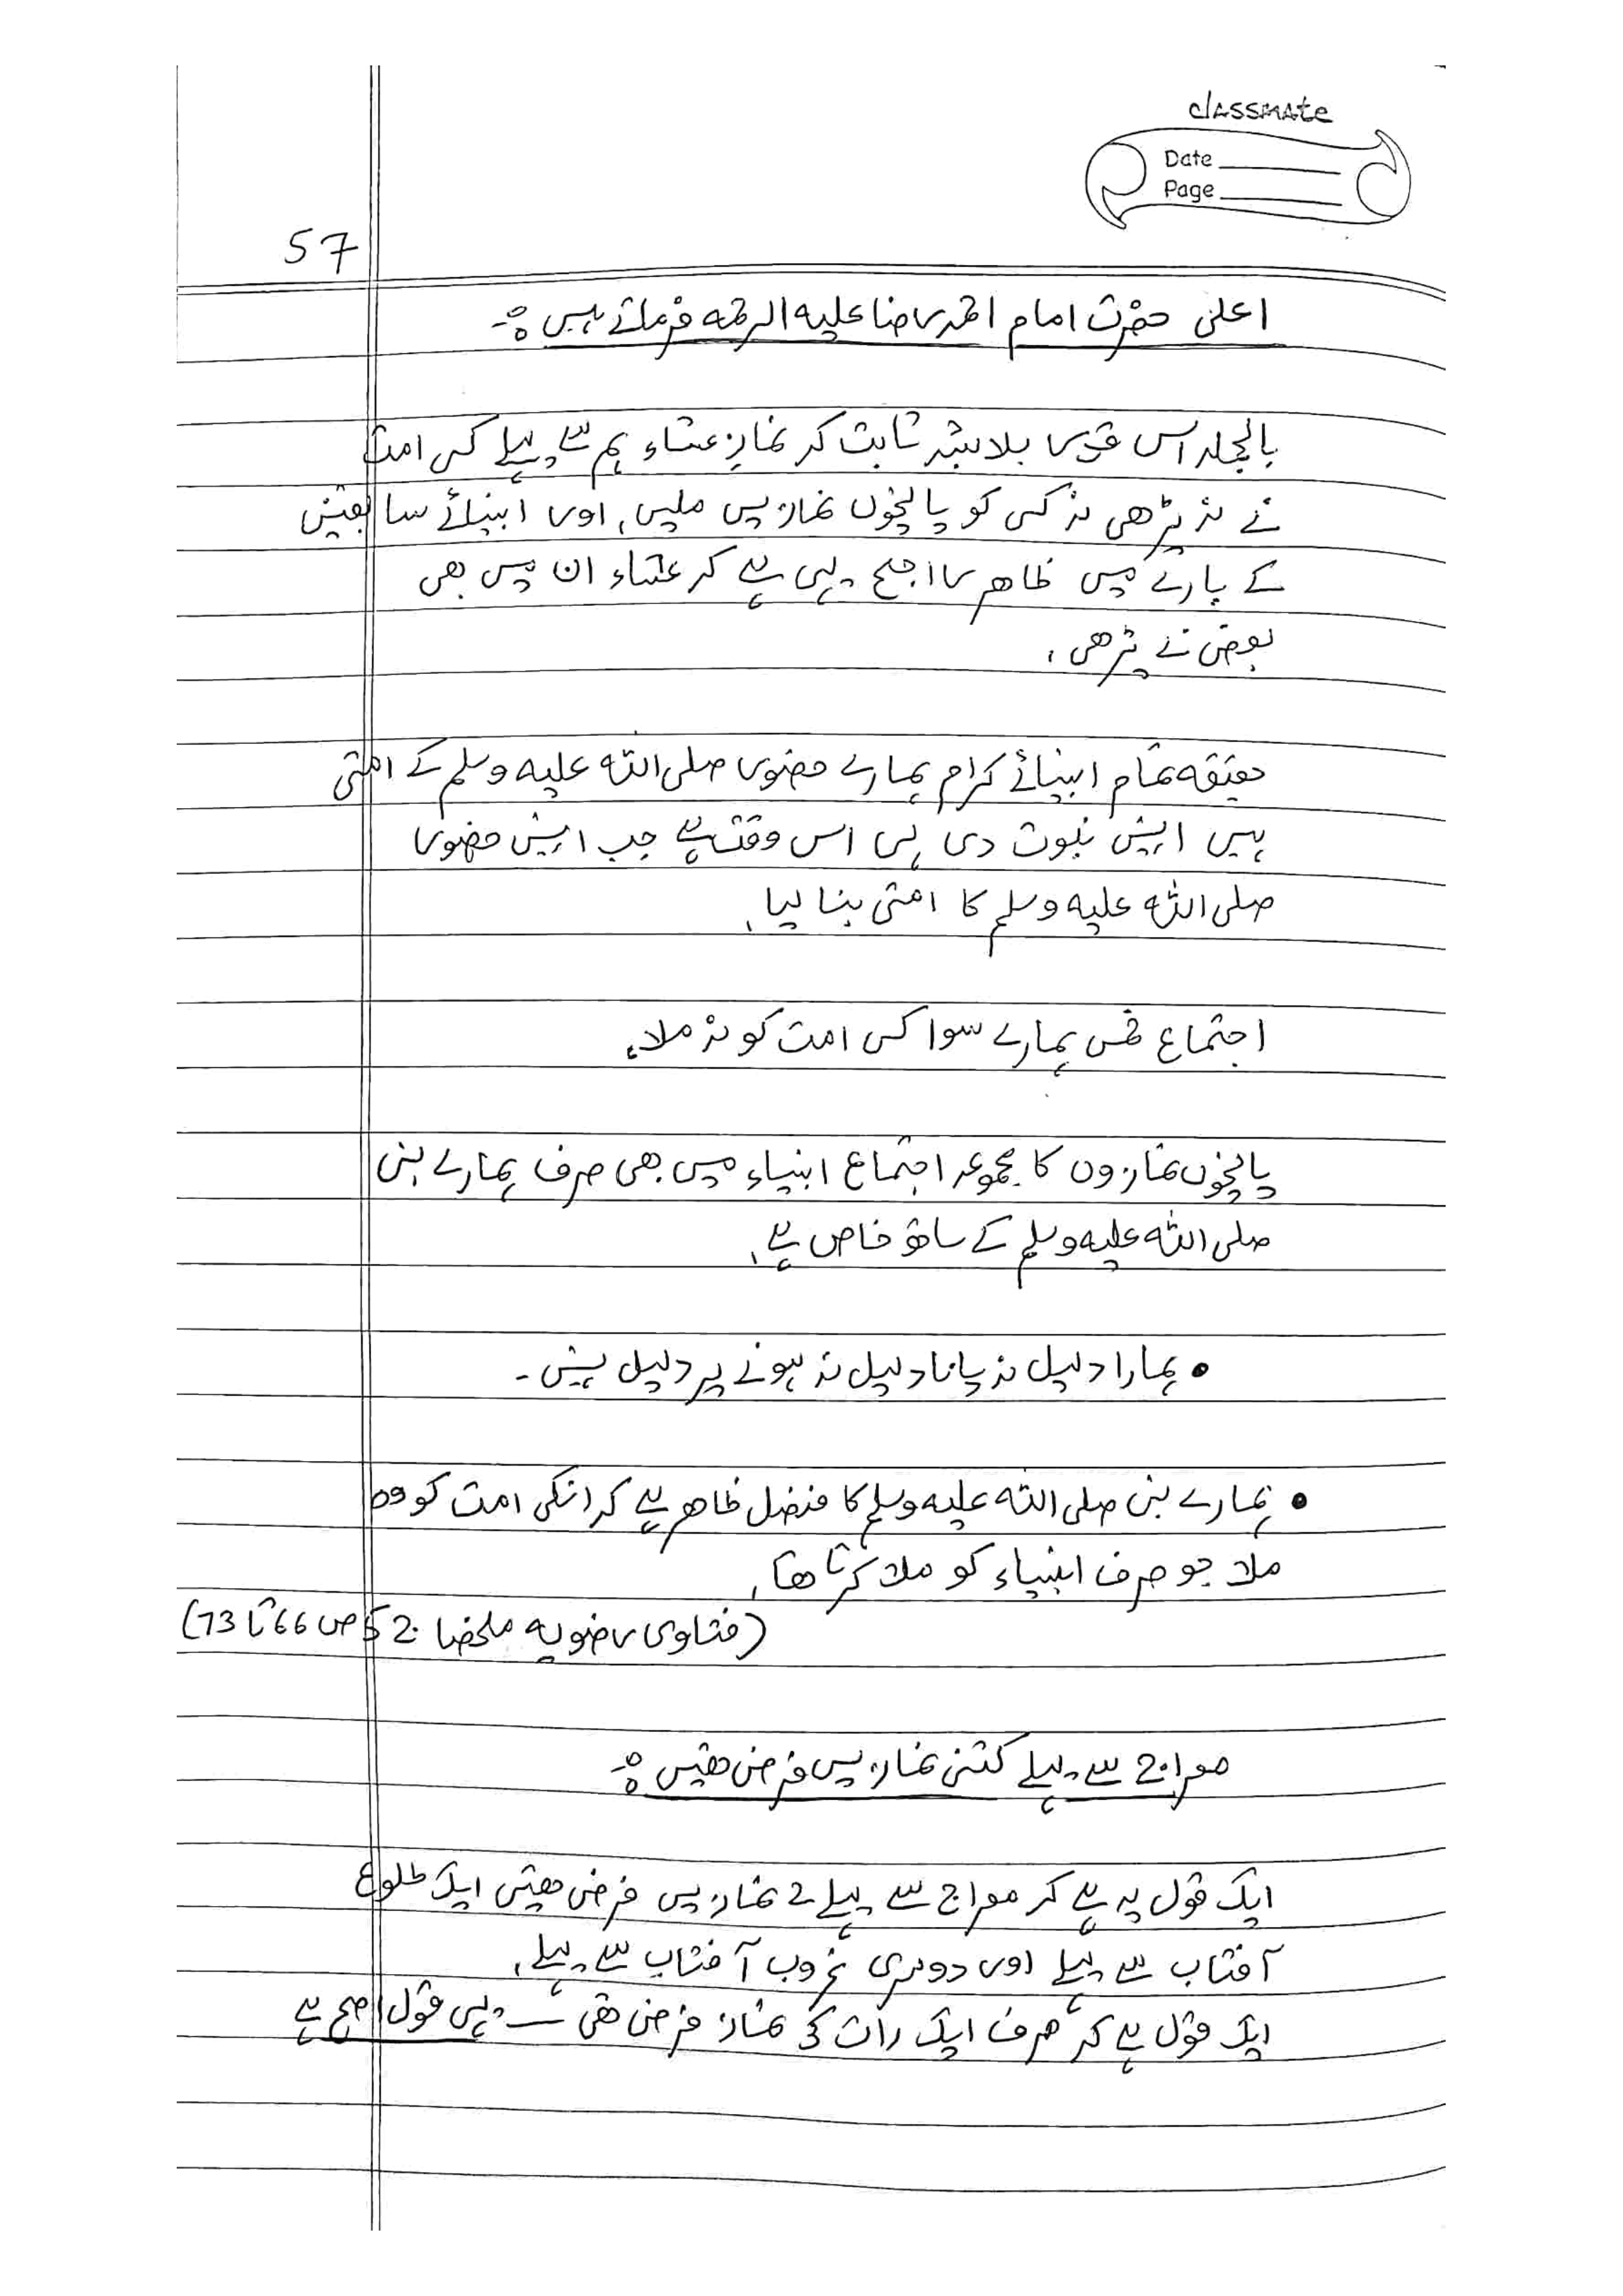 classmate
Date
Page
57
اعلی حضرت امام احمد رضا علیہ الرحمہ فرماتے ہیں :-
بالجملہ اس قدر بلاشبہ ثابت کہ نمازِ عشاء ہم سے پہلے کسی امت
نے نہ پڑھی نہ کسی کو پانچوں نمازیں ملیں، اور انبیائے سابقین
کے بارے میں ظاہر راجح یہی ہے کہ عشاء ان میں بھی
بعض نے پڑھی،
حقیقۃ تمام انبیائے کرام ہمارے حضور صلی اللہ علیہ وسلم کے امتی
ہیں انہیں نبوت دی ہی اس وقت ہے جب انہیں حضور
صلی اللہ علیہ وسلم کا امتی بنا لیا،
اجتماع خمس ہمارے سوا کسی امت کو نہ ملا،
پانچوں نمازوں کا مجموعہ اجتماع انبیاء میں بھی صرف ہمارے نبی
صلی اللہ علیہ وسلم کے ساتھ خاص ہے،
• ہمارا دلیل نہ پانا دلیل نہ ہونے پر دلیل نہیں -
• ہمارے نبی صلی اللہ علیہ وسلم کا فضل ظاہر ہے کہ انکی امت کو وہ
ملا جو صرف انبیاء کو ملا کرتا تھا،
(فتاوی رضویہ ملخصا ج 5 ص 66 تا 73)
معراج سے پہلے کتنی نمازیں فرض تھیں :-
ایک قول یہ ہے کہ معراج سے پہلے 2 نمازیں فرض تھیں ایک طلوع
آفتاب سے پہلے اور دوسری غروب آفتاب سے پہلے،
ایک قول ہے کہ صرف ایک رات کی نماز فرض تھی ـــ یہی قول اصح ہے